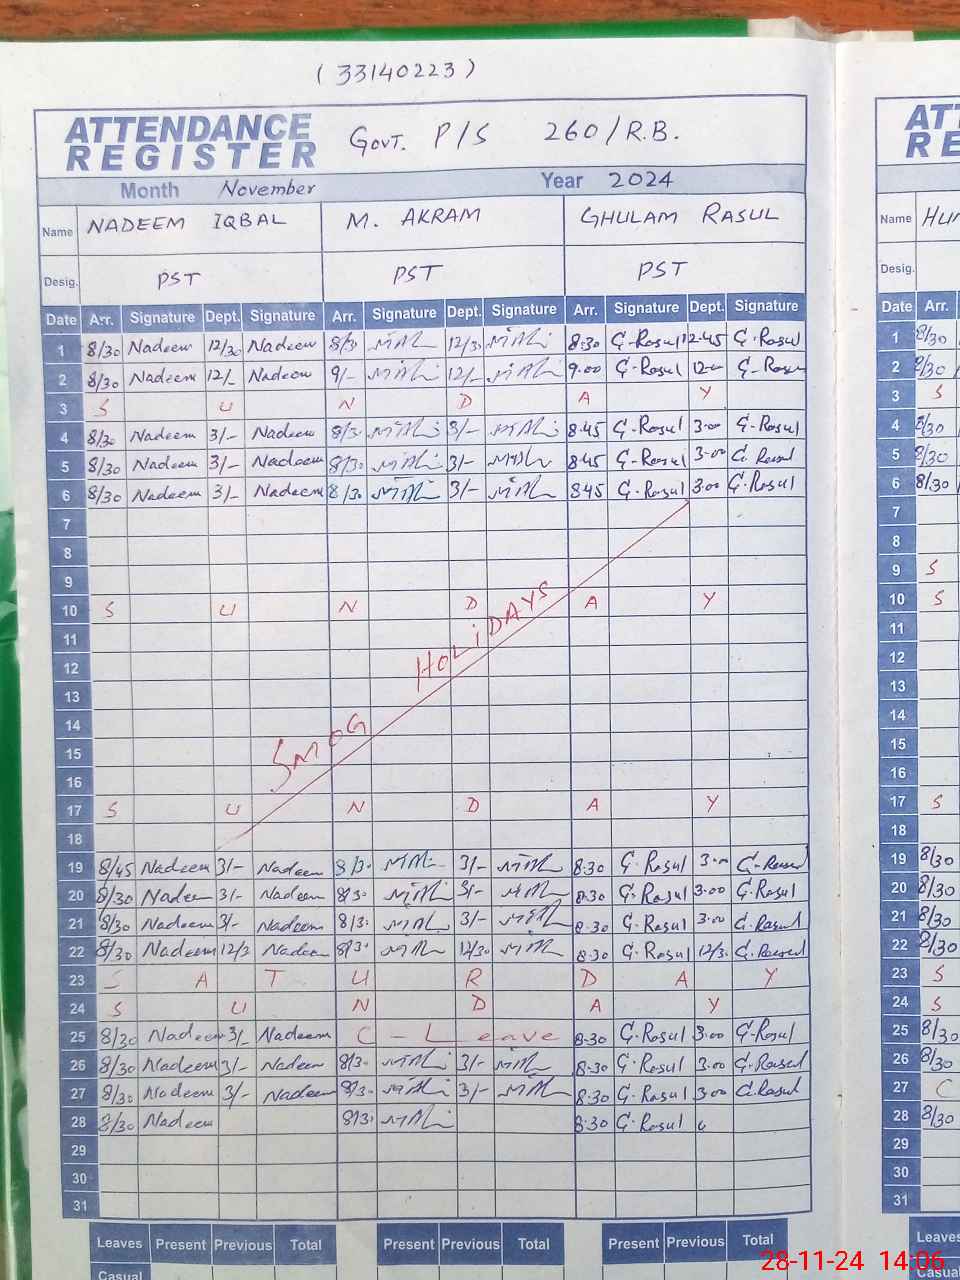 ( 33140223 )
ATTENDANCE
REGISTER
GOVT. P/S 260/R.B.
Month November Year 2024
Name NADEEM IQBAL M. AKRAM GHULAM RASUL
Desig. PST PST PST
Date Arr. Signature Dept. Signature Arr. Signature Dept. Signature Arr. Signature Dept. Signature
1 8/30 Nadeem 12/30 Nadeem 8/3 12/3 8.30 G.Rasul 12.45 G.Rasul
2 8/30 Nadeem 12/- Nadeem 9/- 12/- 9.00 G.Rasul 12.00 G.Rasul
3 S U N D A Y
4 8/30 Nadeem 3/- Nadeem 8/3 3/- 8.45 G.Rasul 3.00 G.Rasul
5 8/30 Nadeem 3/- Nadeem 8/30 3/- 8.45 G.Rasul 3.00 G.Rasul
6 8/30 Nadeem 3/- Nadeem 8/30 3/- 8.45 G.Rasul 3.00 G.Rasul
7
8
9
10 S U N D A Y
11
12
13
14
15
16
SMOG HOLIDAYS
17 S U N D A Y
18
19 8/45 Nadeem 3/- Nadeem 8/3. 3/- 8.30 G.Rasul 3.00 G.Rasul
20 8/30 Nadeem 3/- Nadeem 8/3. 3/- 8.30 G.Rasul 3.00 G.Rasul
21 8/30 Nadeem 3/- Nadeem 8/3. 3/- 8.30 G.Rasul 3.00 G.Rasul
22 8/30 Nadeem 12/3 Nadeem 8/3. 12/30 8.30 G.Rasul 12/3. G.Rasul
23 S A T U R D A Y
24 S U N D A Y
25 8/30 Nadeem 3/- Nadeem C - Leave 8.30 G.Rasul 3.00 G.Rasul
26 8/30 Nadeem 3/- Nadeem 8/3. 3/- 8.30 G.Rasul 3.00 G.Rasul
27 8/30 Nadeem 3/- Nadeem 8/3. 3/- 8.30 G.Rasul 3.00 G.Rasul
28 8/30 Nadeem 8/3. 8.30 G.Rasul
29
30
31
Leaves Present Previous Total Present Previous Total Present Previous Total
Casual
Name
Desig.
Date Arr.
1 8/30
2 8/30
3 S
4 8/30
5 8/30
6 8/30
7
8
9 S
10 S
11
12
13
14
15
16
17 S
18
19 8/30
20 8/30
21 8/30
22 8/30
23 S
24 S
25 8/30
26 8/30
27 C
28 8/30
29
30
31
Leaves
Casual
28-11-24 14:06